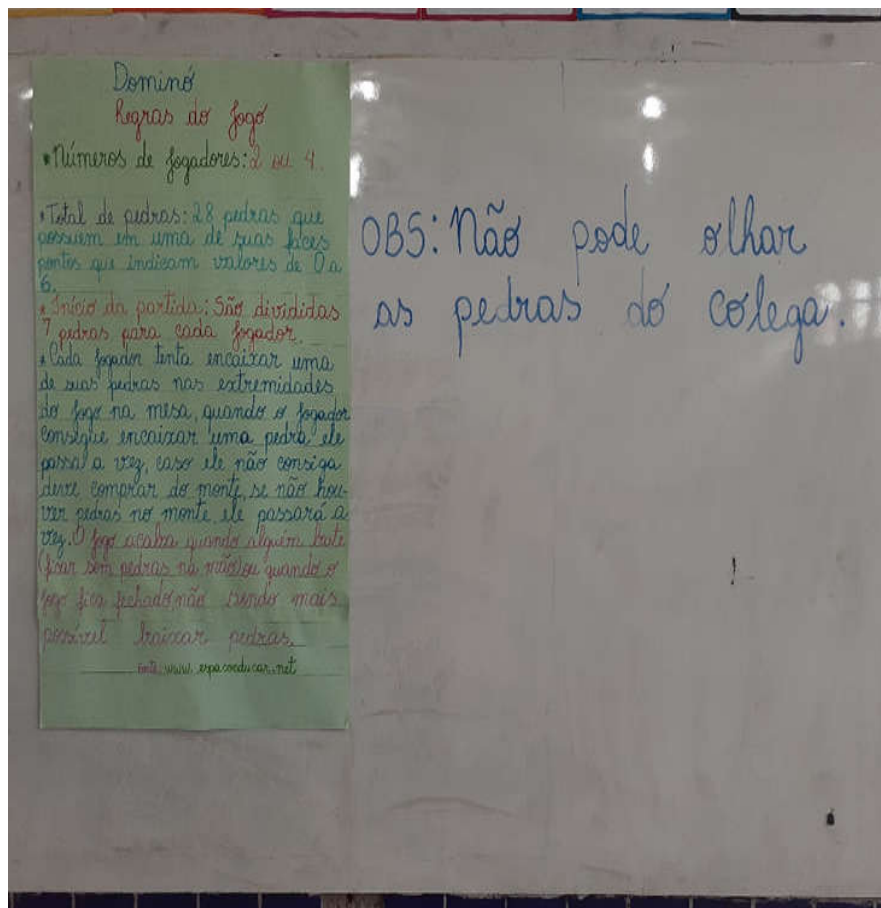 Dominó
Regras do Jogo
•Números de Jogadores: 2 ou 4.
•Total de pedras: 28 pedras que
possuem em uma de suas faces
pontos que indicam valores de 0 a
6.
•Início da partida: São divididas
7 pedras para cada jogador.
•Cada jogador tenta encaixar uma
de suas pedras nas extremidades
do jogo na mesa, quando o jogador
consegue encaixar uma pedra ele
passa a vez, caso ele não consiga
deve comprar do monte, se não hou-
ver pedras no monte, ele passará a
vez. O jogo acaba quando alguém bate
(ficar sem pedras na mão) ou quando o
jogo fica fechado, não sendo mais
possível baixar pedras.
Fonte: www.espacoeducar.net
OBS: Não pode olhar
as pedras do colega.